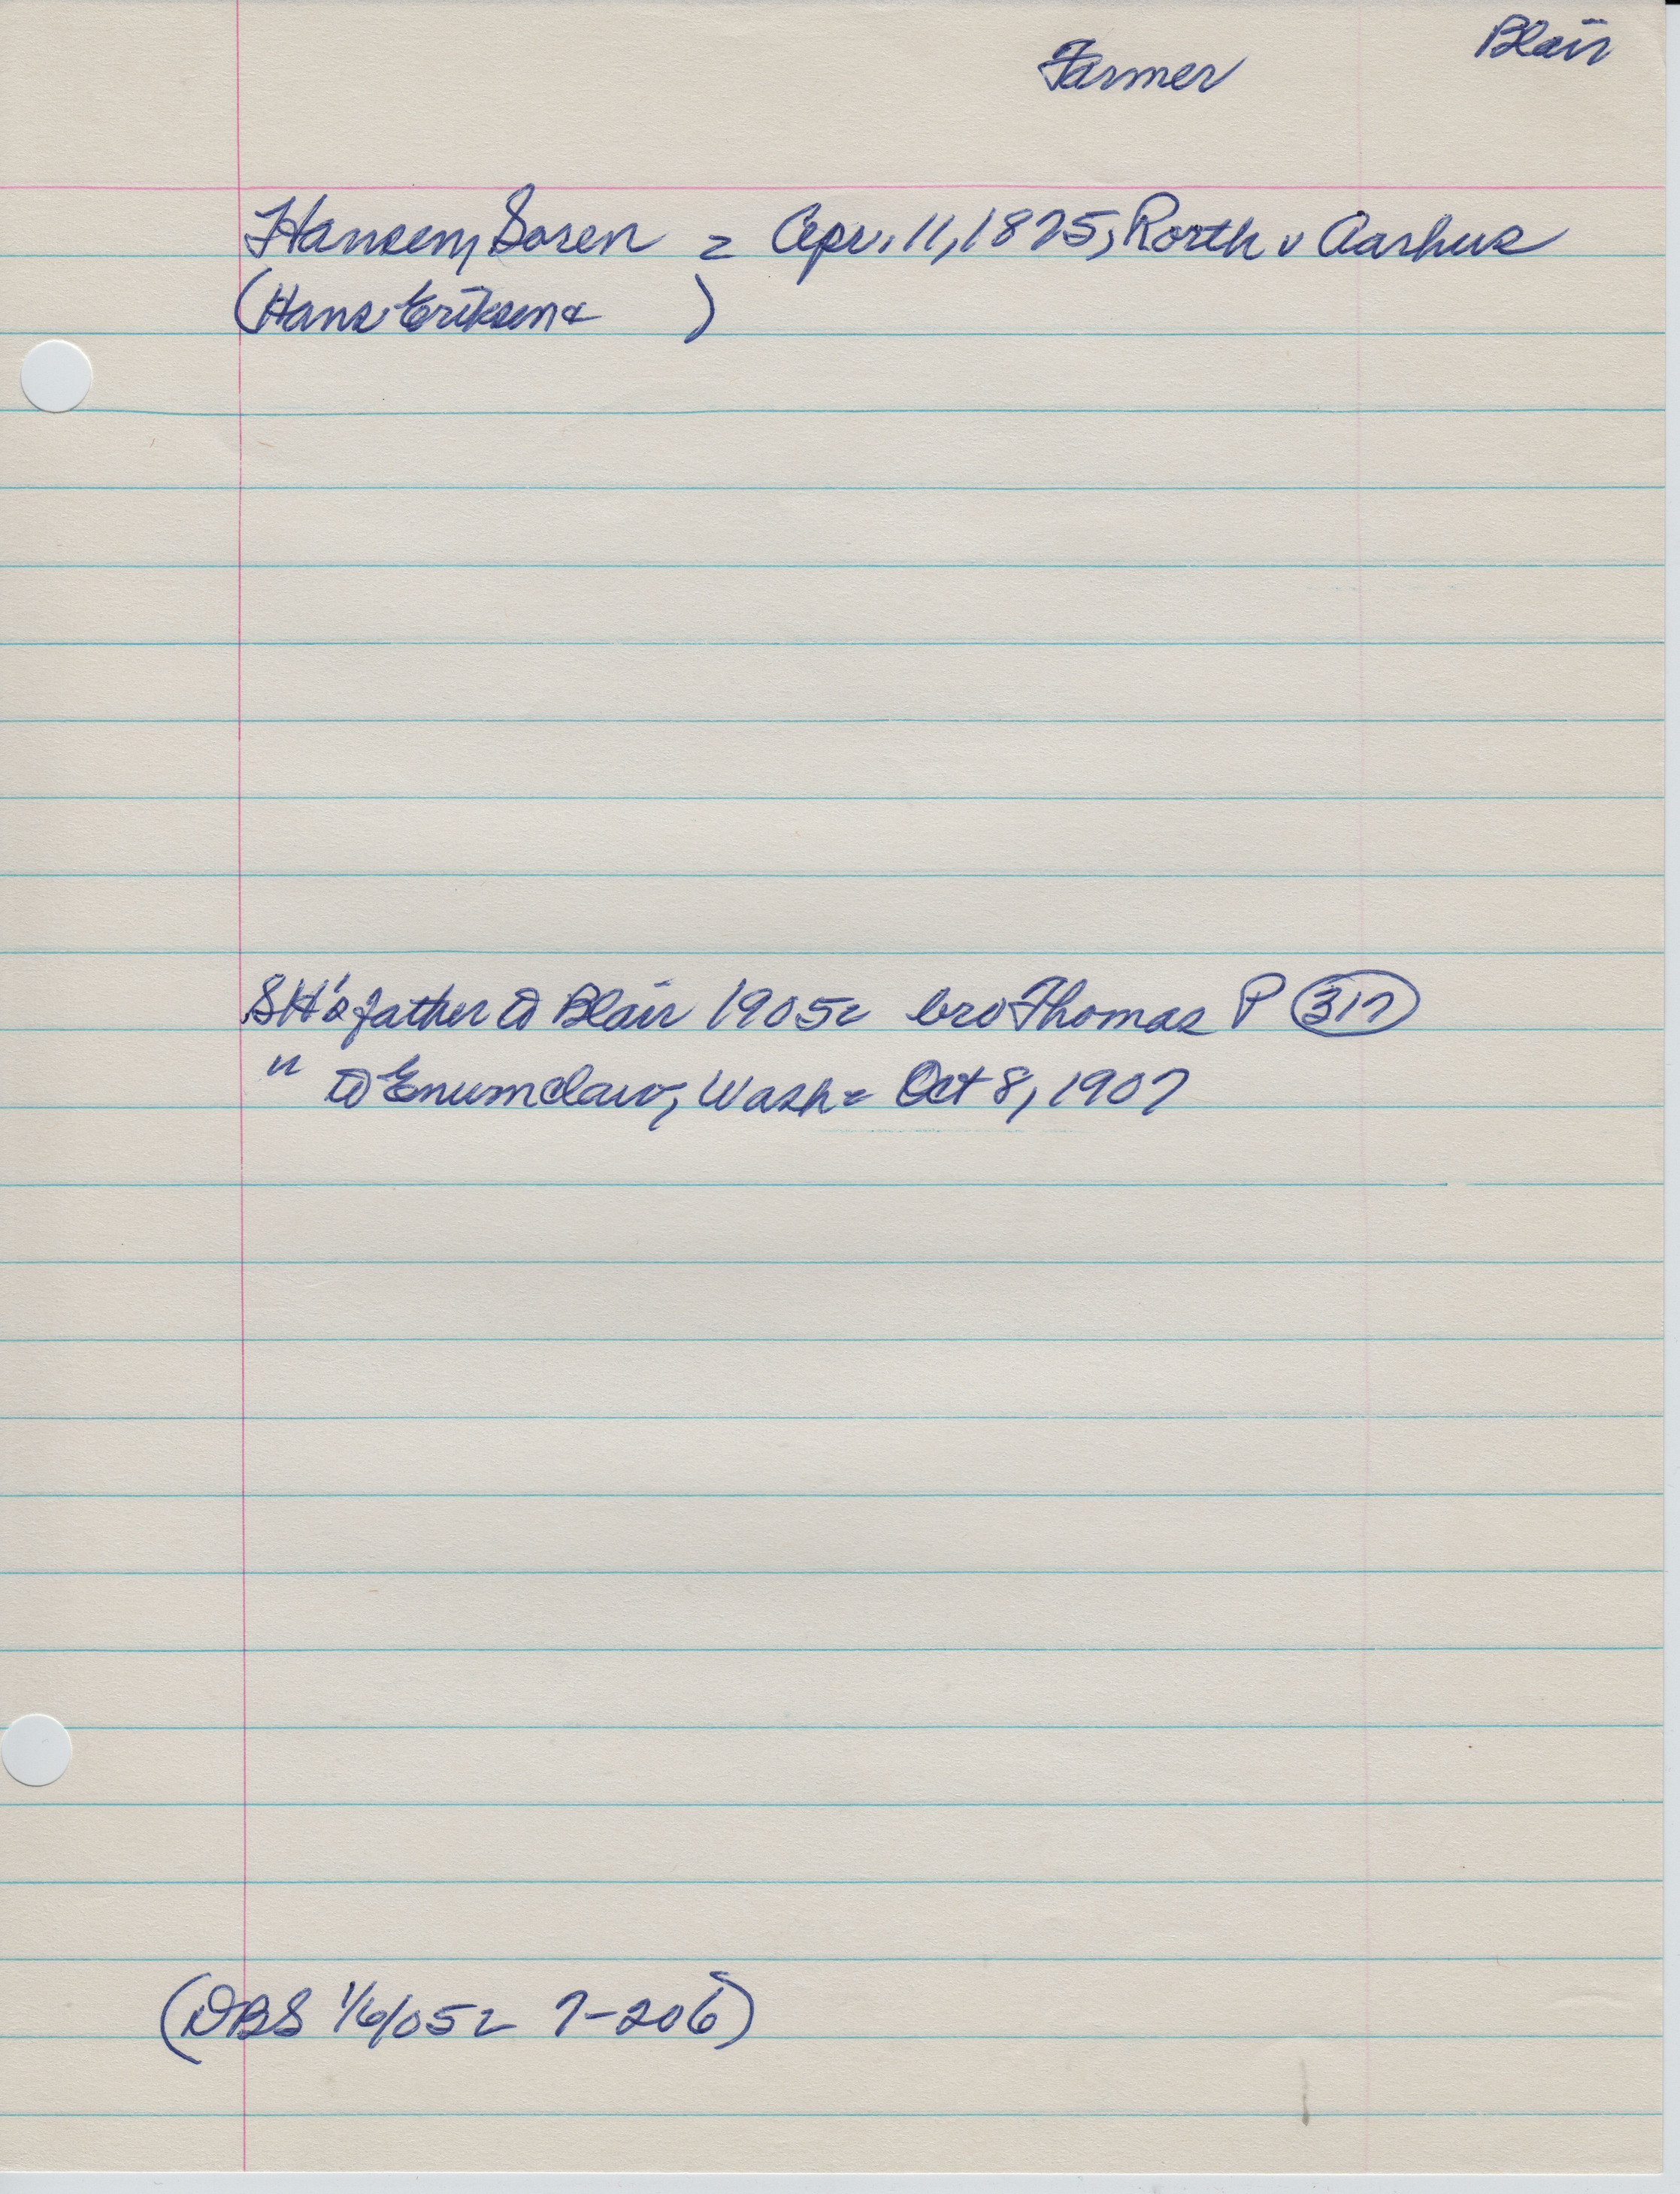 Blair
Farmer
Hansen, Soren = Apr. 11, 1875, Rorth v Aarhus
(Hans Eriksen & )
SH's father to Blair 1905= bro Thomas P 317
" to Enumclaw, Wash= Oct 8, 1907
(DBS 1/6/05= 7-206)